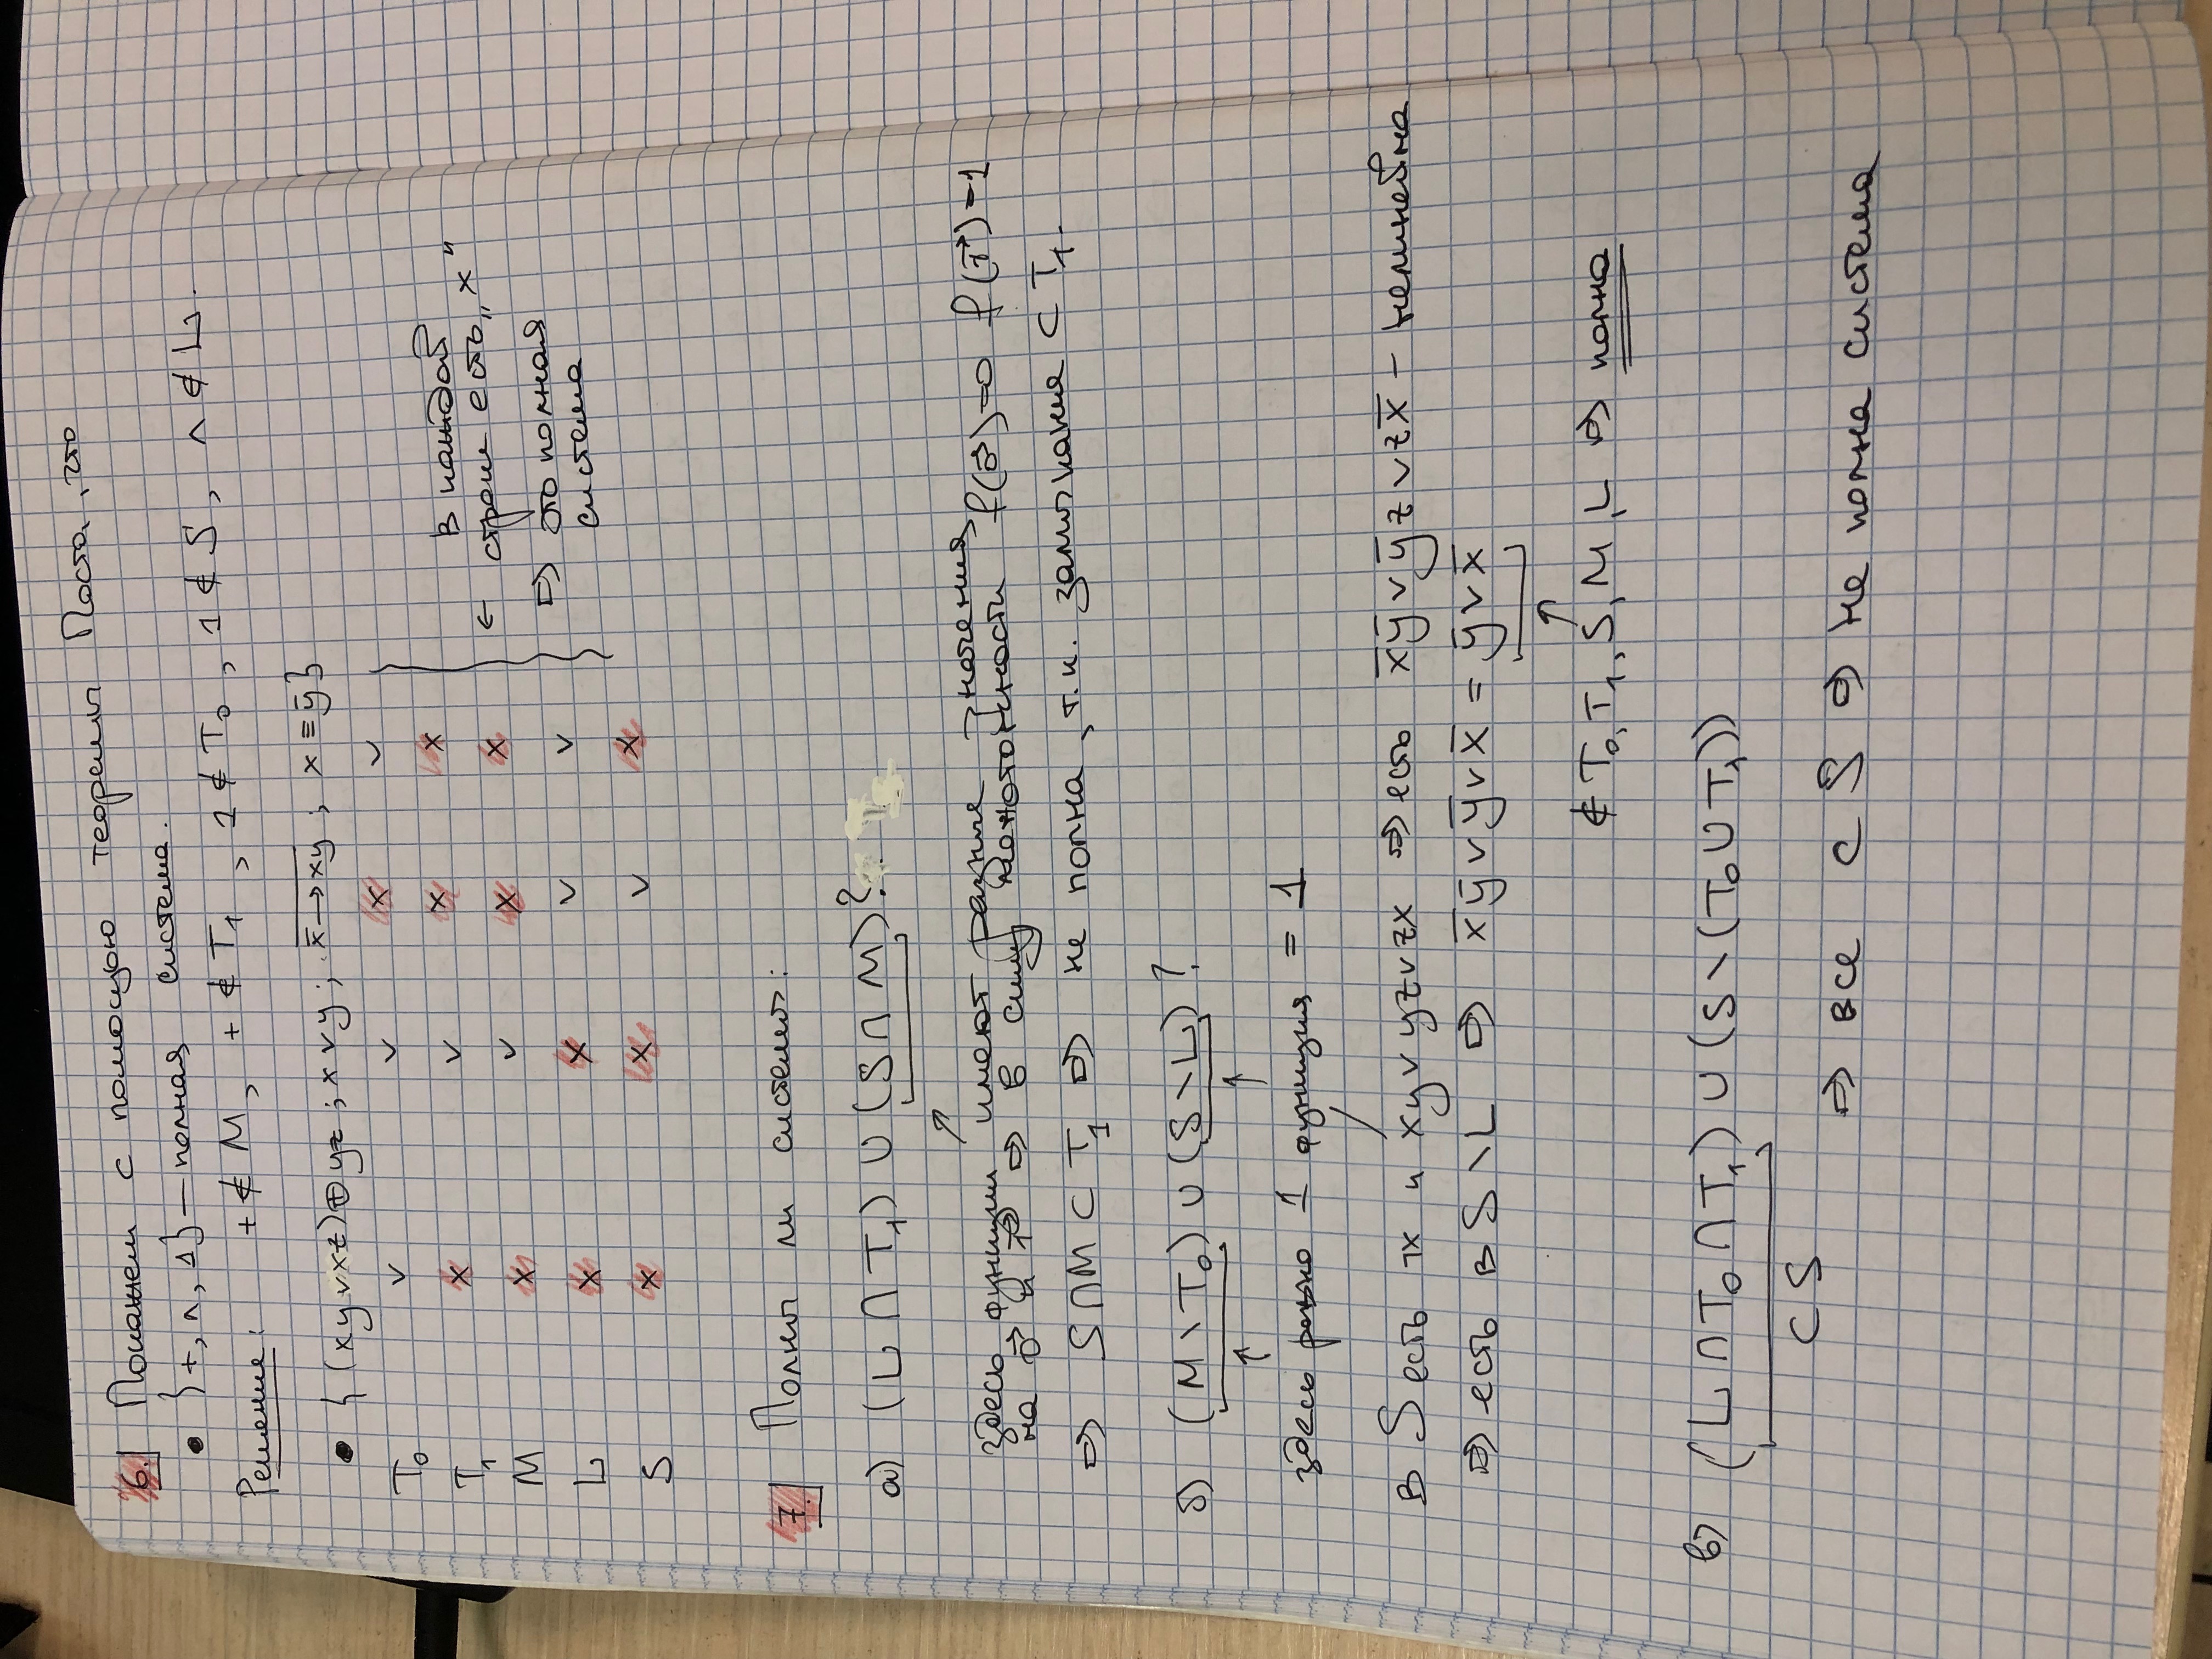 6. Покажем с помощью теоремы Поста, что
• {+, ∧, 1} — полная система.
Решение: + ∉ M, + ∉ T₁, 1 ∉ T₀, 1 ∉ S, ∧ ∉ L.
• { (xy ∨ xz) ⊕ yz ; x ∨ y ; \overline{\overline{x} → xy} ; x ≡ ȳ }
T₀ ∨ ∨ × ∨
T₁ × ∨ × ×
M × ∨ × ×
L × × ∨ ∨
S × × ∨ ×
← в каждой
строке есть „×"
⇒ это полная
система
7. Полны ли системы:
а) (L ∩ T₁) ∪ (S ∩ M)?
здесь функции имеют разные значения
на 0⃗ и 1⃗ ⇒ в силу монотонности f(0⃗)=0 f(1⃗)=1
⇒ S∩M ⊂ T₁ ⇒ не полна, т.к. замыкание ⊂ T₁.
б) (M \ T₀) ∪ (S \ L)?
здесь ровно 1 функция = 1
в S есть ¬x и xy∨yz∨zx ⇒ есть x̄ȳ∨ȳz∨zx̄ – нелинейна
⇒ есть в S\L ⇒ x̄ȳ∨ȳ∨x̄ = ȳ∨x̄
∉ T₀, T₁, S, M, L ⇒ полна
в) (L ∩ T₀ ∩ T₁) ∪ (S \ (T₀ ∪ T₁))
⊂ S
⇒ все ⊂ S ⇒ не полна система